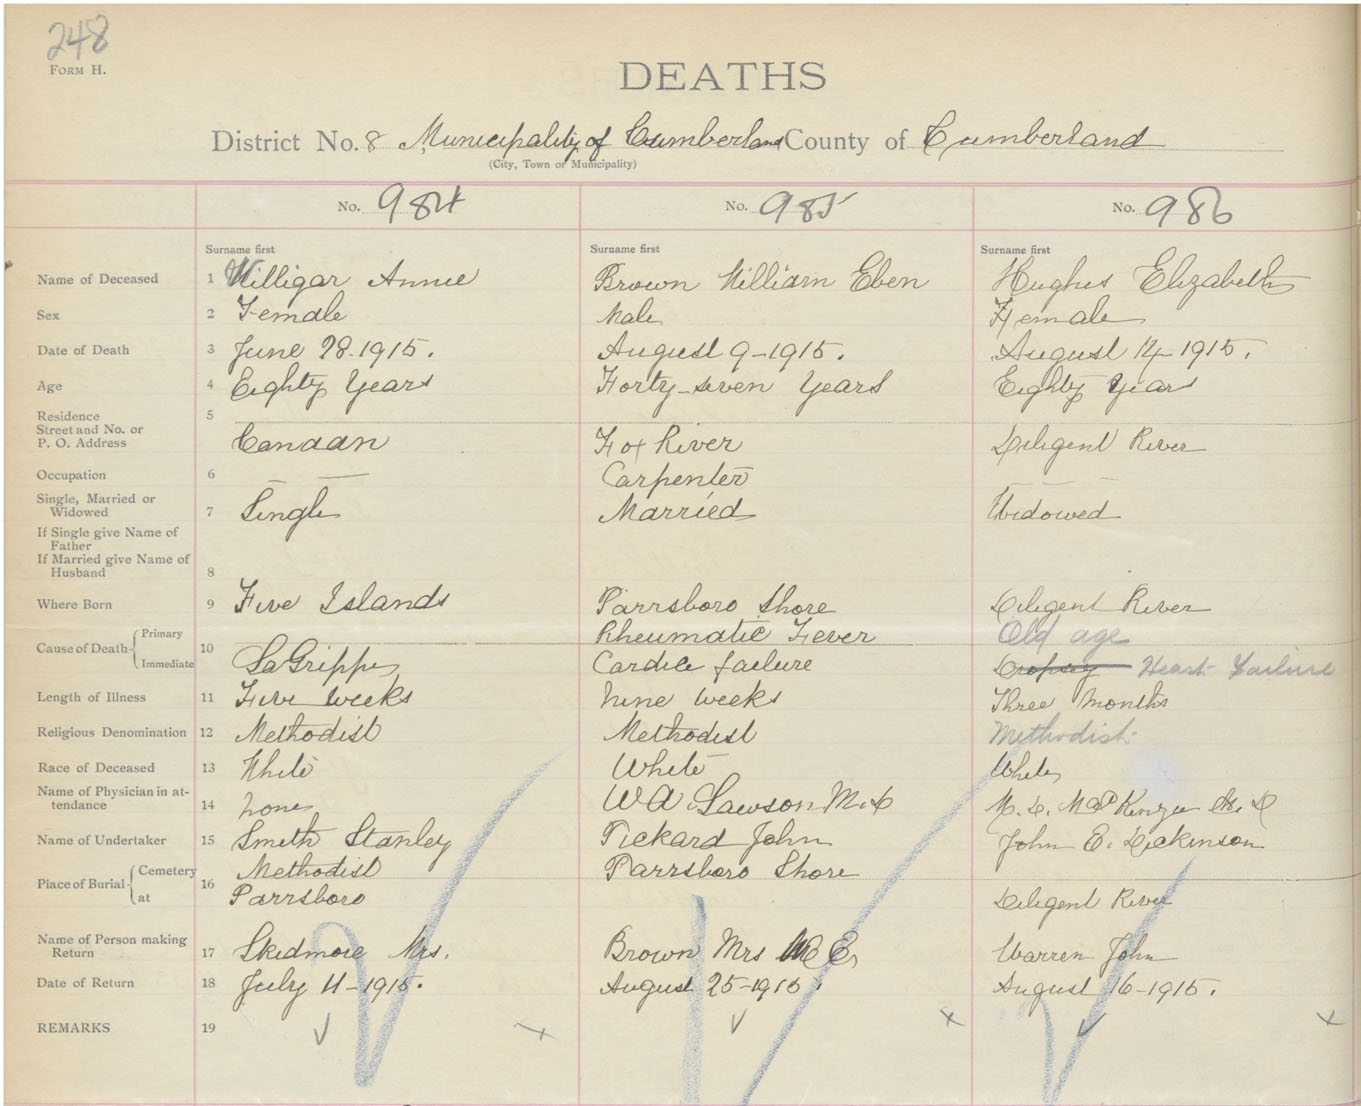 248
FORM H.
DEATHS
District No. 8 Municipality of Cumberland County of Cumberland
(City, Town or Municipality)
No. 984 No. 985 No. 986
Surname first Surname first Surname first
Name of Deceased 1 Willigar Annie Brown William Eben Hughes Elizabeth
Sex 2 Female Male Female
Date of Death 3 June 28-1915. August 9-1915. August 14-1915.
Age 4 Eighty Years Forty-seven Years Eighty Years
Residence 5
Street and No. or
P. O. Address Canaan Fox River Diligent River
Occupation 6 — — Carpenter — —
Single, Married or
Widowed 7 Single Married Widowed
If Single give Name of
Father
If Married give Name of
Husband 8
Where Born 9 Five Islands Parrsboro Shore Diligent River
Cause of Death Primary 10 Rheumatic Fever Old age
Immediate LaGrippe Cardice failure Dropsey Heart Failure
Length of Illness 11 Five weeks Nine weeks Three months
Religious Denomination 12 Methodist Methodist Methodist
Race of Deceased 13 White White White
Name of Physician in at-
tendance 14 None W A Lawson M.D M. D. McKenzie M. D
Name of Undertaker 15 Smith Stanley Pickard John John E. Dickinson
Place of Burial Cemetery 16 Methodist Parrsboro Shore
at Parrsboro Diligent River
Name of Person making
Return 17 Skidmore Mrs. Brown Mrs E. Warren John
Date of Return 18 July 11-1915. August 25-1915. August 16-1915.
REMARKS 19